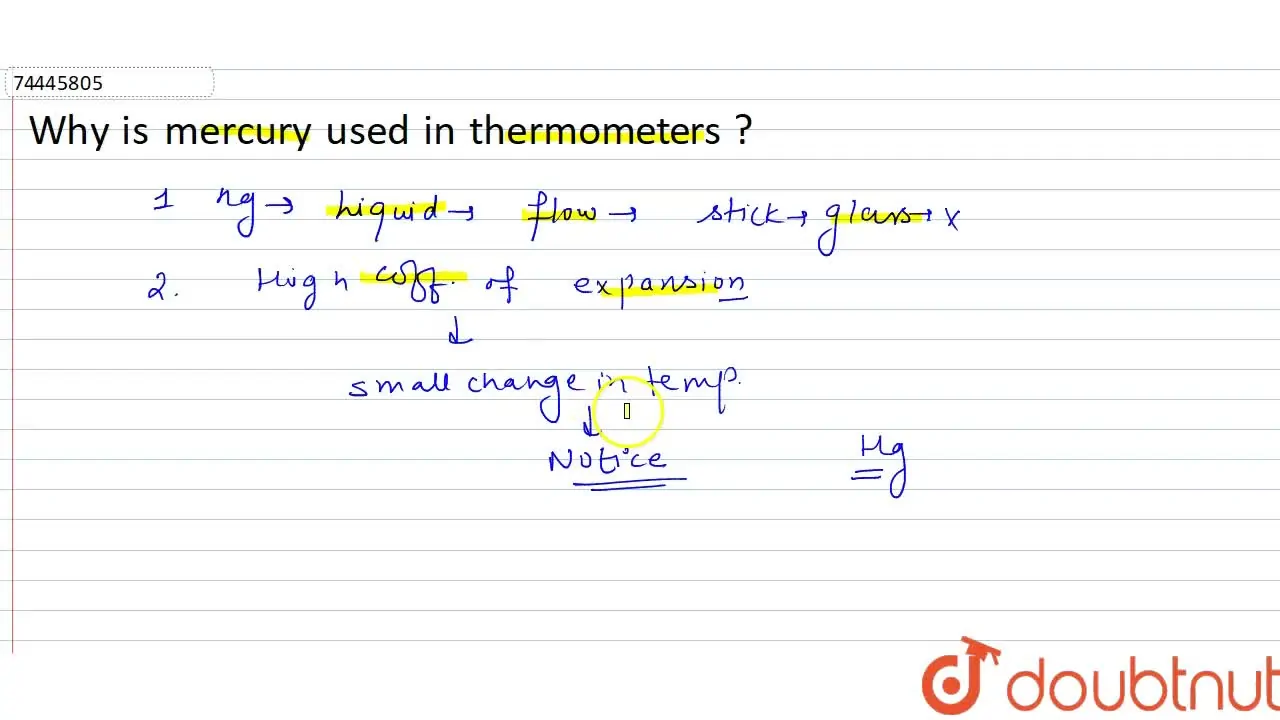 74445805
Why is mercury used in thermometers ?
1 Hg → liquid → flow → stick → glass → x
2. High coff. of expansion
↓
small change in temp.
↓
Notice
Hg
doubtnut